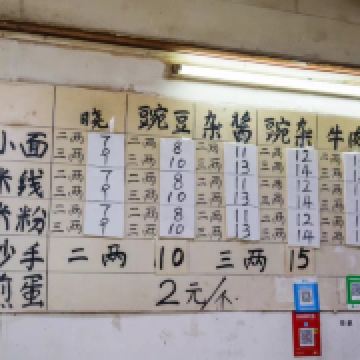 晓 豌豆 杂酱 豌杂 牛肉
小面 二两 7 二两 8 二两 11 二两 12
三两 9 三两 10 三两 13 三两 14
米线 二两 7 二两 8 二两 11 二两 12
三两 9 三两 10 三两 13 三两 14
米粉 二两 7 二两 8 二两 11 二两 12
三两 9 三两 10 三两 13 三两 14
抄手 二两 10 三两 15
煎蛋 2元/个